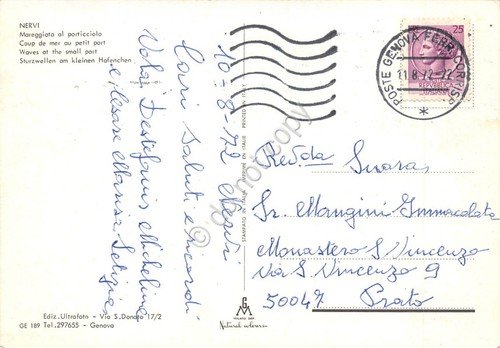 NERVI
Mareggiata al porticciolo
Coup de mer au petit port
Waves at the small port
Sturzwellen am kleinen Hafenchen
10-8-72 Nervi
Cari Saluti e ricordi
Volai Destefanis Micheline
e Cesare Marisa Letizia
Ediz. Ultrafoto - Via S. Donato 17/2
GE 189 Tel. 297655 - Genova
STAMPATO IN ITALIA IMPRIMÉ EN ITALIE PRINTED IN ITALY
GM
MILANO
Natural colorcum
25
POSTE GENOVA FERR. CORRISP.
11.8.72-22
Rev.da Suora
Sr. Mangini Immacolata
Monastero S Vincenzo
Via S. Vincenzo 9
50047 Prato